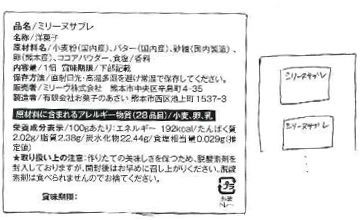 品名/ミリーヌサブレ
名称/洋菓子
原材料名/小麦粉(国内産)、バター(国内産)、砂糖(国内製造)、
卵(熊本産)、ココアパウダー、食塩/香料
内容量/1個　賞味期限/下部記載
保存方法/直射日光・高温多湿を避け常温で保存してください。
販売者/ミリーヴ株式会社　熊本市中央区辛島町4-35
製造者/有限会社お菓子のあさい 熊本市西区池上町1537-3
原材料に含まれるアレルギー物質(28品目)/小麦、卵、乳
栄養成分表示/100gあたり:エネルギー 192kcal/たんぱく質
2.02g/脂質2.38g/炭水化物22.44g/食塩相当量0.029g(推
定値)
★取り扱い上の注意:作りたての美味しさを保つため、脱酸素剤を
封入しておりますが、開封後はお早めに召し上がりください。脱酸
素剤は食べられませんのでお捨てください。
賞味期限:
プラ
ミリーヌサブレ
ミリーヌサブレ